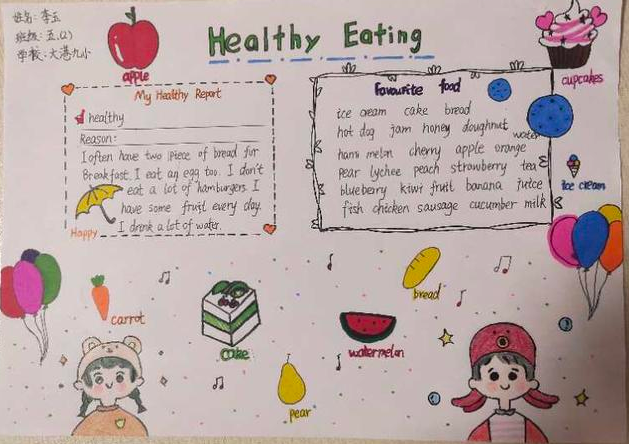 姓名：李玉
班级：五.(2)
学校：大港九小
Healthy Eating
apple
cupcakes
My Healthy Report
healthy
Reason:
I often have two piece of bread for
Breakfast. I eat an egg too. I don't
eat a lot of hamburgers. I
have some fruit every day.
I drink a lot of water.
Happy
Favourite food
ice cream cake bread
hot dog jam honey doughnut
water
hami melon cherry apple orange
pear lychee peach strawberry tea
blueberry kiwi fruit banana juice
fish chicken sausage cucumber milk
ice cream
bread
carrot
cake
watermelon
pear